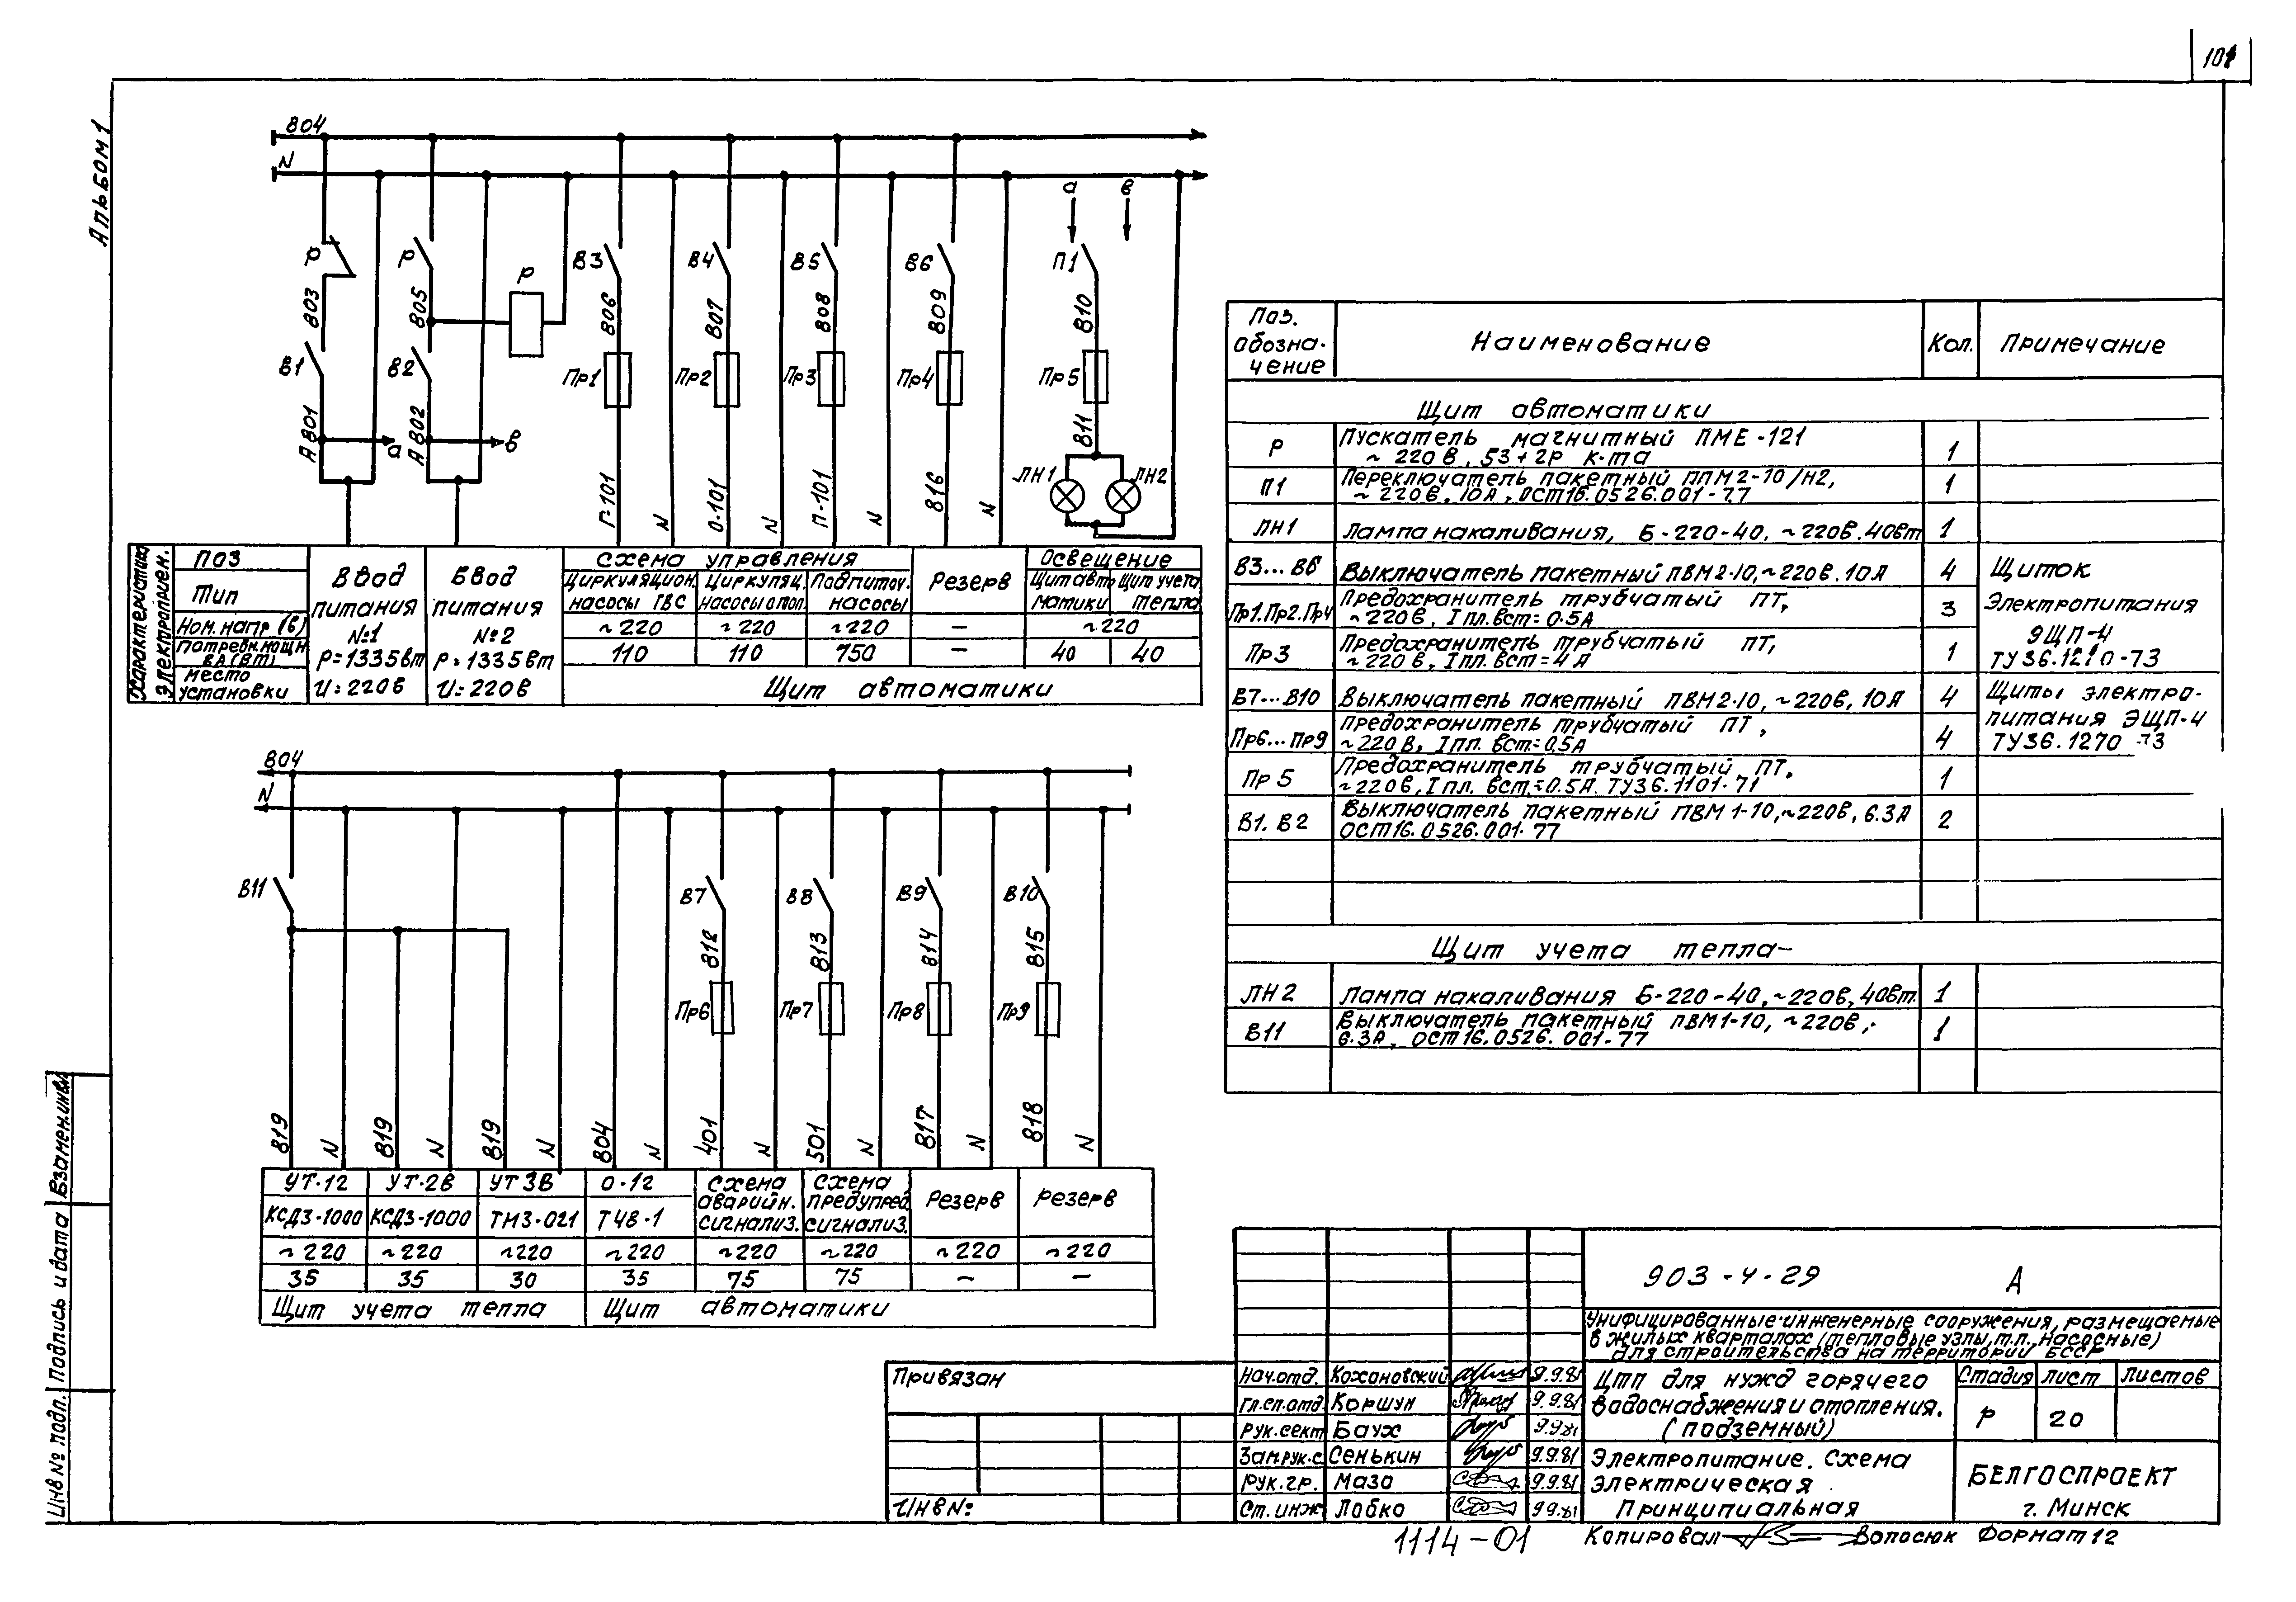 Альбом 1
804
N
а
в
Р
Р
Р
В3
В4
В5
В6
П1
803
805
806
807
808
809
810
В1
В2
Пр1
Пр2
Пр3
Пр4
Пр5
А801
а
А802
в
811
ЛН1
ЛН2
Г-101
N
О-101
N
П-101
N
816
N
Характеристика электроприем.
Поз
Тип
Ном. напр (в)
Потребн. мощн ва (вт)
Место установки
Ввод питания №1 Р=1335вт U=220в
Ввод питания №2 Р=1335вт U=220в
Схема управления
Циркуляцион. насосы ГВС
Циркуляц. насосы отоп.
Подпиточ. насосы
Резерв
Освещение
Щит автоматики
Щит учета тепла
~220 ~220 ~220 – ~220
110 110 750 – 40 40
Щит автоматики
804
N
В11
В7
В8
В9
В10
812
813
814
815
Пр6
Пр7
Пр8
Пр9
819
N
819
N
819
N
804
N
401
N
501
N
817
N
818
N
УТ-12 УТ-2В УТ 3В О-12
КСД3-1000 КСД3-1000 ТМ3-021 Т48-1
Схема аварийн. сигнализ.
Схема предупред. сигнализ.
Резерв
Резерв
~220 ~220 ~220 ~220 ~220 ~220 ~220 ~220
35 35 30 35 75 75 – –
Щит учета тепла
Щит автоматики
Поз. обозначение Наименование Кол. Примечание
Щит автоматики
Р Пускатель магнитный ПМЕ-121 1
~220в, 53+2Р к-та
П1 Переключатель пакетный ППМ2-10/Н2, 1
~220в, 10А, ОСТ16.0526.001-77
ЛН1 Лампа накаливания, Б-220-40, ~220в. 40вт 1
В3...В6 Выключатель пакетный ПВМ2-10, ~220в. 10А 4 Щиток
Пр1. Пр2. Пр4 Предохранитель трубчатый ПТ, 3 Электропитания
~220в, Iпл.вст=0.5А ЭЩП-4
Пр3 Предохранитель трубчатый ПТ, 1 ТУ36.1270-73
~220в, Iпл.вст=4А
В7...В10 Выключатель пакетный ПВМ2-10, ~220в, 10А 4 Щиты электро-
Пр6...Пр9 Предохранитель трубчатый ПТ, 4 питания ЭЩП-4
~220в, Iпл. вст=0.5А ТУ36.1270-73
Пр5 Предохранитель трубчатый ПТ, 1
~220в, Iпл. вст.=0.5А. ТУ36.1101-71
В1. В2 Выключатель пакетный ПВМ1-10, ~220в, 6.3А 2
ОСТ16.0526.001-77
Щит учета тепла
ЛН2 Лампа накаливания Б-220-40, ~220в, 40вт. 1
В11 Выключатель пакетный ПВМ1-10, ~220в, 1
6.3А, ОСТ16.0526.001-77
903-4-29 А
Унифицированные инженерные сооружения, размещаемые
в жилых кварталах (тепловые узлы, т.п., насосные)
для строительства на территории БССР
Нач.отд. Кохановский 9.9.81
Гл.сп.отд. Коршун 9.9.81
Рук.сект Баух 9.9.81
Зам.рук.с. Сенькин 9.9.81
Рук.гр. Мазо 9.9.81
Ст.инж Лобко 9.9.81
ЦТП для нужд горячего
водоснабжения и отопления.
(подземный)
Стадия Лист Листов
Р 20
Электропитание. Схема
электрическая
Принципиальная
БЕЛГОСПРОЕКТ
г. Минск
Привязан
Инв №:
Инв № подл. Подпись и дата Взамен.инв№
1114-01
Копировал Волосюк Формат 12